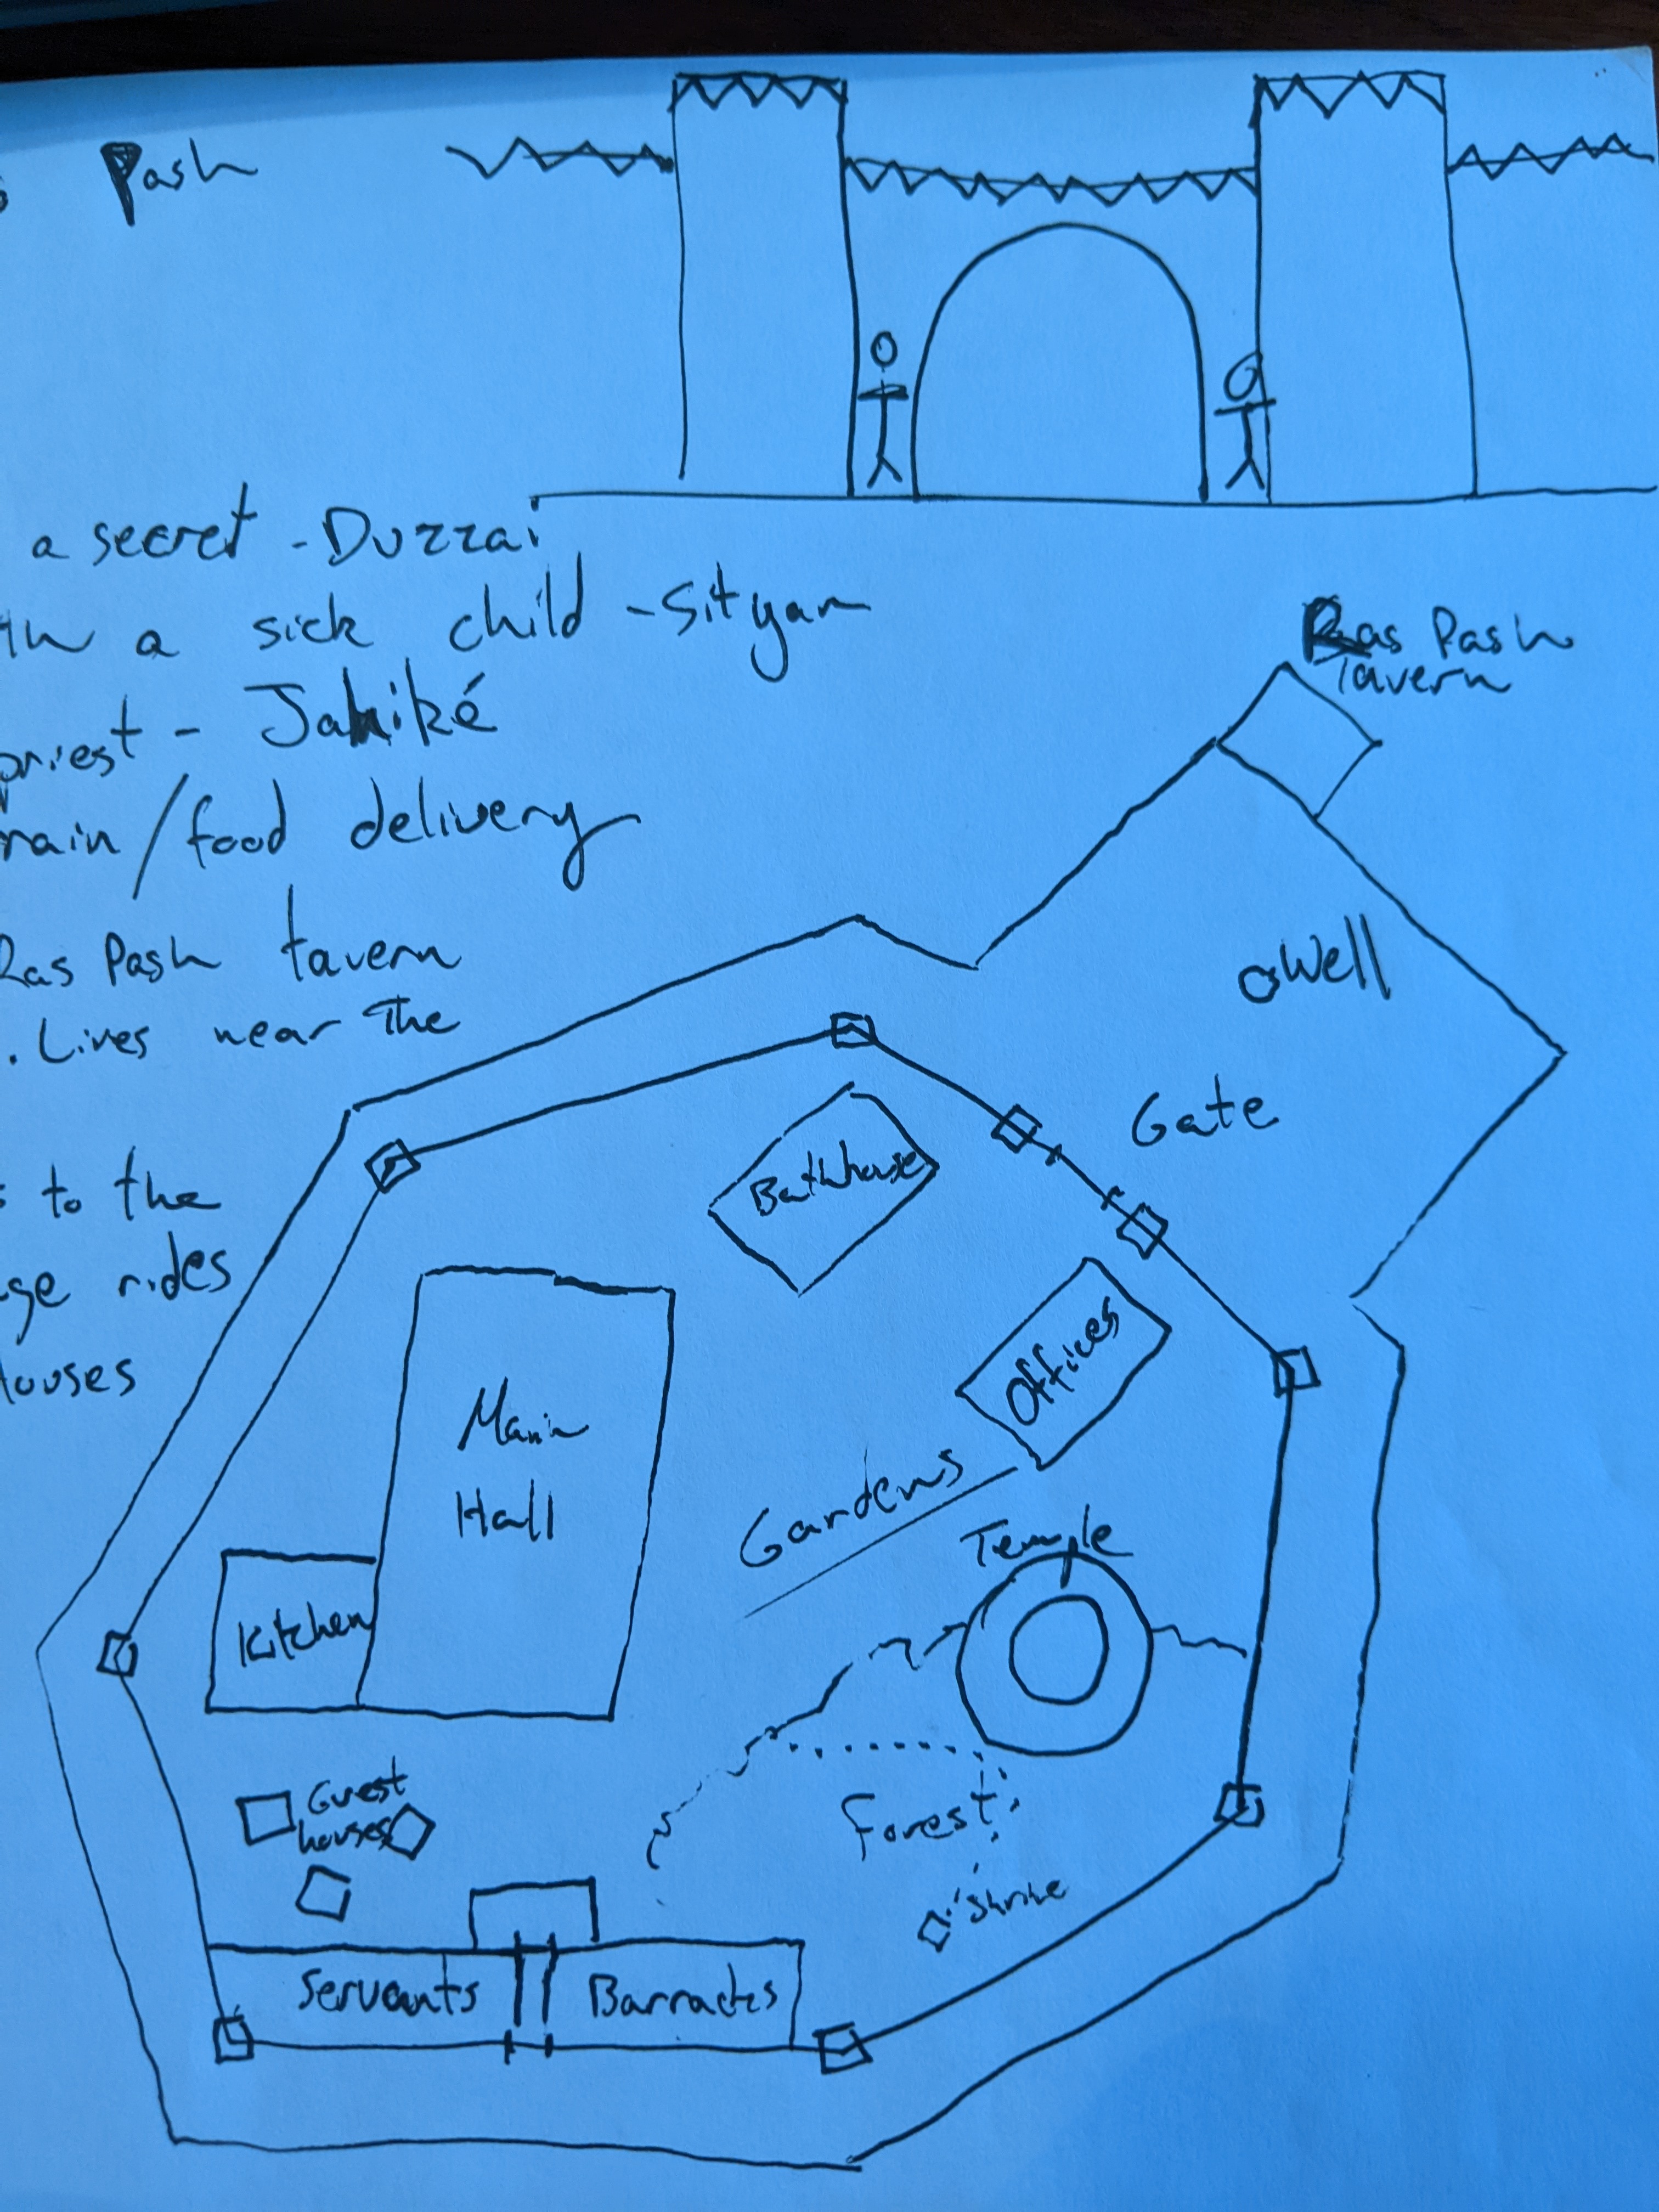 Pash
a secret - Duzzai
a sick child - Sityam
priest - Jahiké
rain/food delivery
Ras Pash tavern
. Lives near The
to the
rides
houses
Ras Pash
Tavern
Well
Gate
Bathhouse
Offices
Main
Hall
Gardens
Temple
Kitchen
Guest
houses
Forest
Shrine
Servants
Barracks